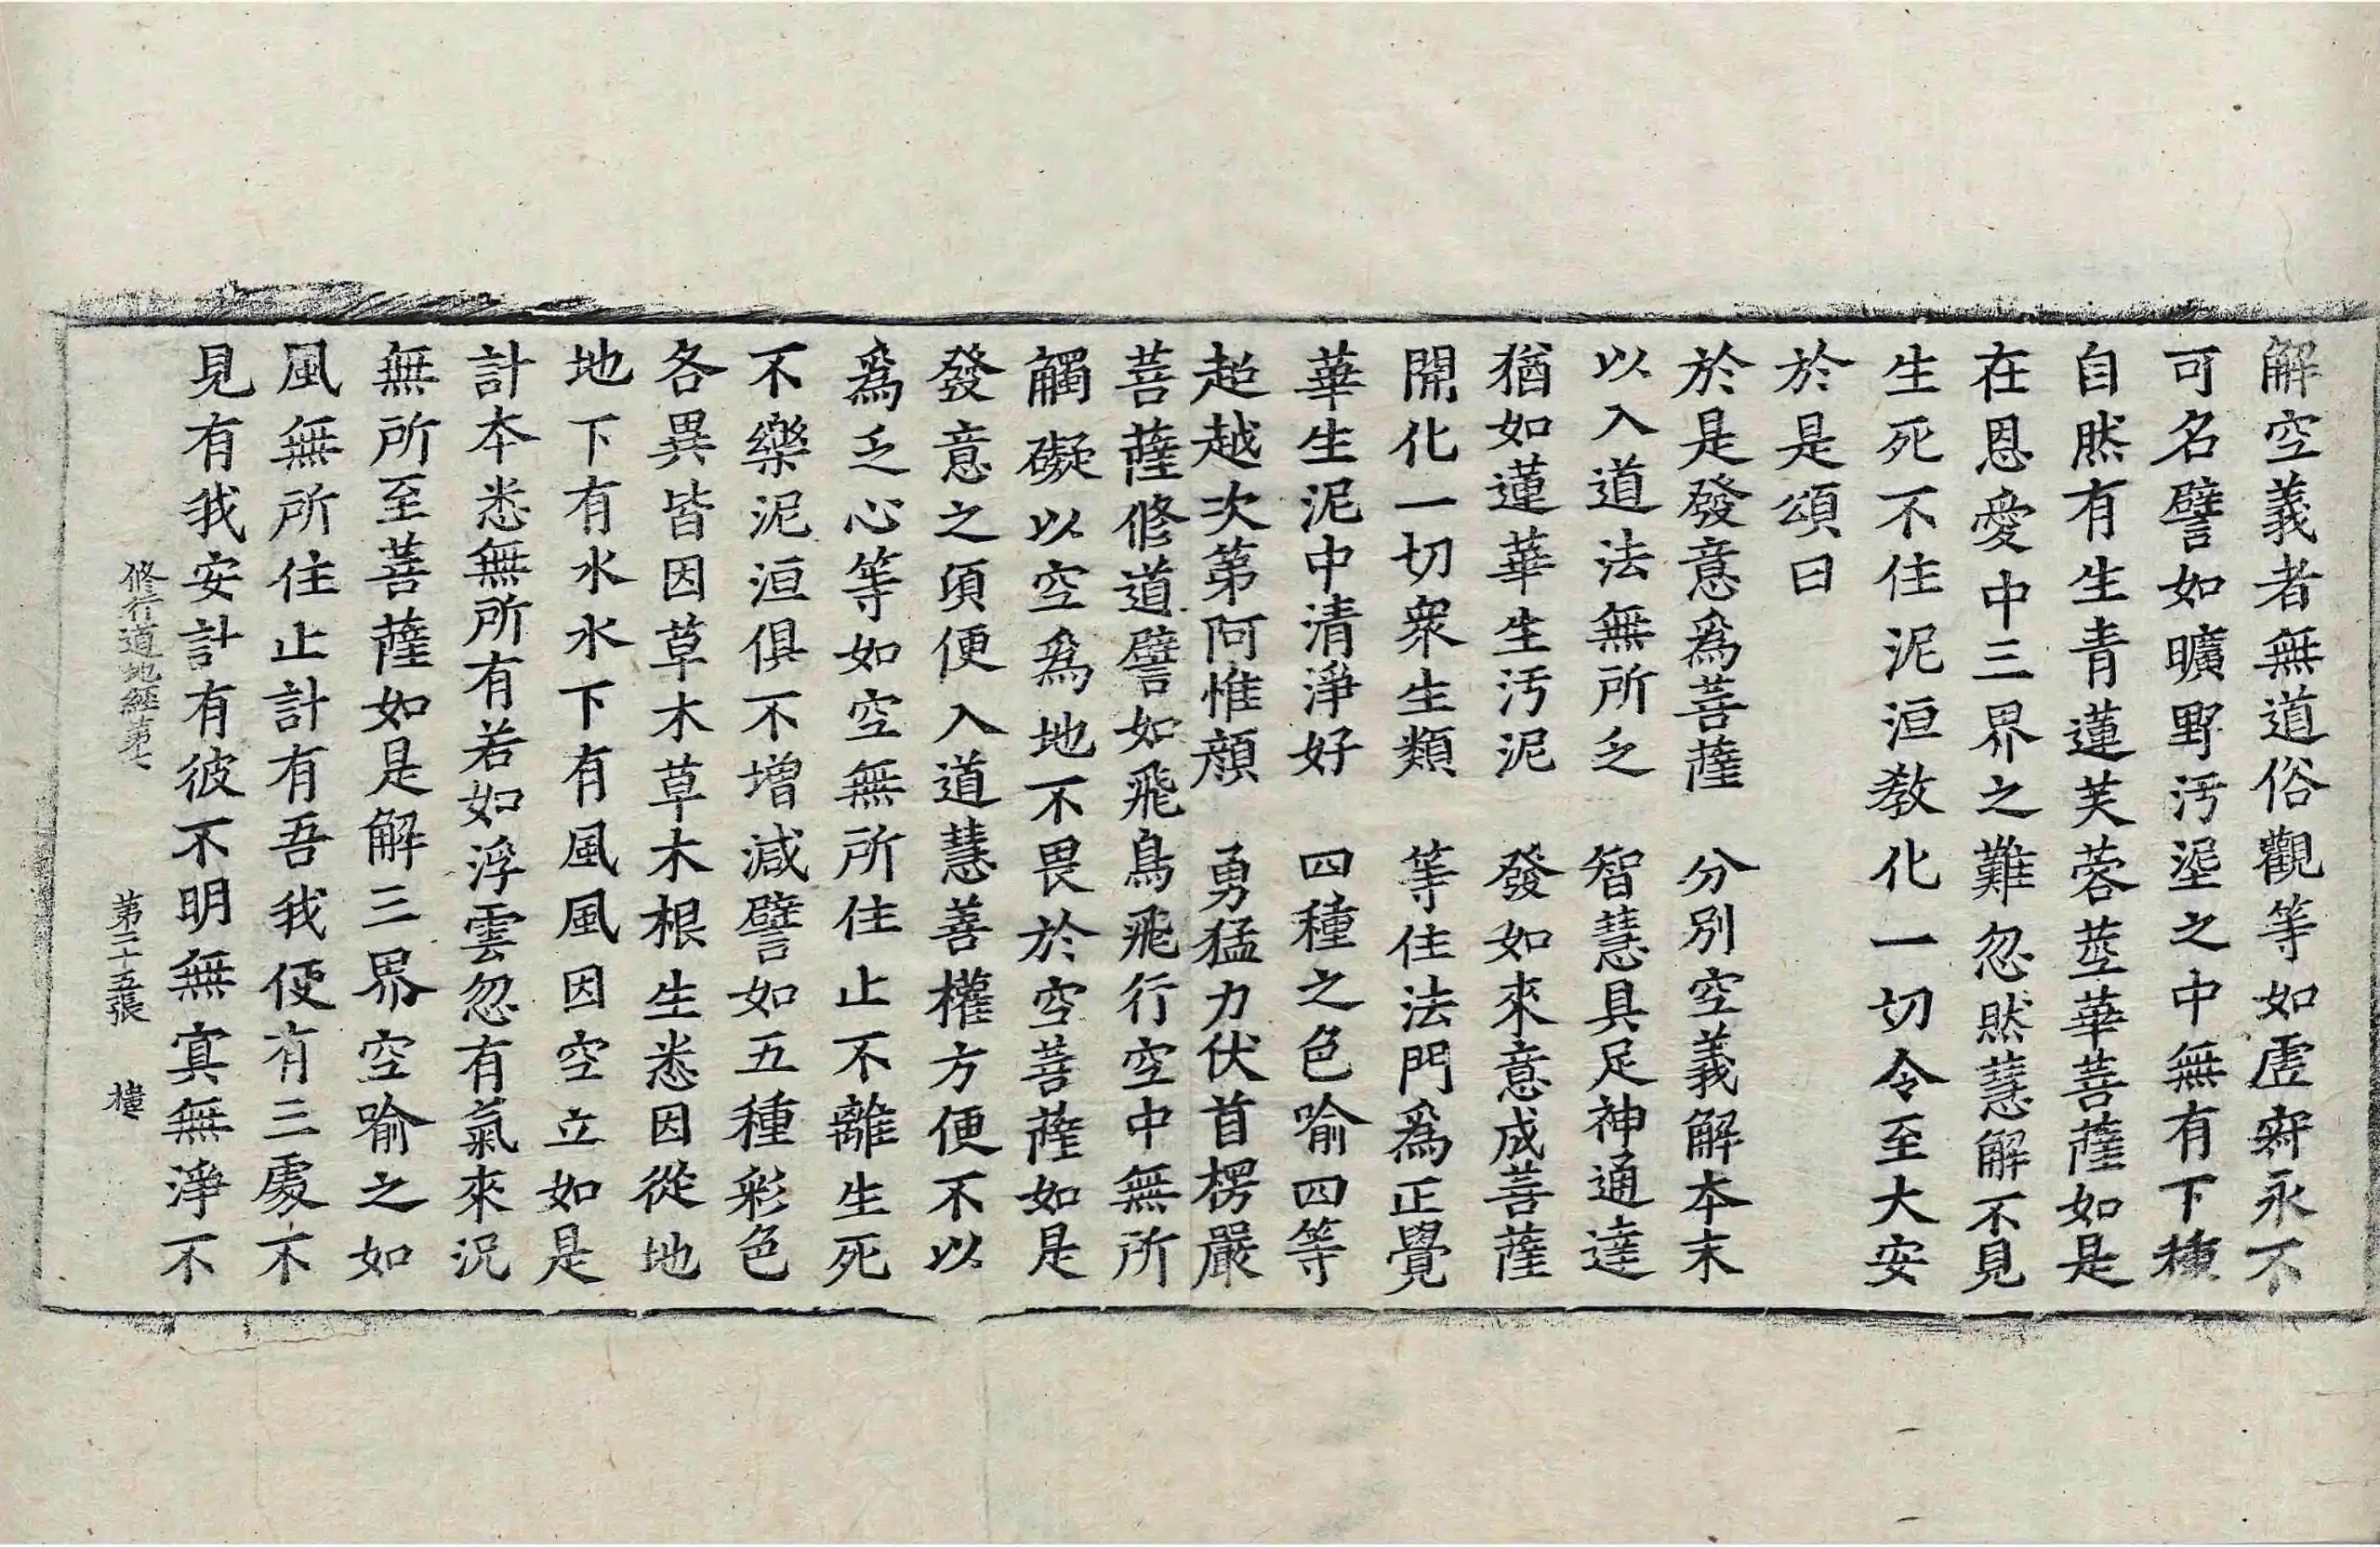 解空義者無道俗觀等如虛寂永不
可名譬如曠野汚埿之中無有下種
自然有生青蓮芙蓉莖華菩薩如是
在恩愛中三界之難忽然慧解不見
生死不住泥洹教化一切令至大安
於是頌曰
於是發意爲菩薩　分別空義解本末
以入道法無所乏　智慧具足神通達
猶如蓮華生汚泥　發如來意成菩薩
開化一切衆生類　等住法門爲正覺
華生泥中清淨好　四種之色喻四等
超越次第阿惟顔　勇猛力伏首楞嚴
菩薩修道譬如飛鳥飛行空中無所
觸礙以空爲地不畏於空菩薩如是
發意之頃便入道慧善權方便不以
爲乏心等如空無所住止不離生死
不樂泥洹俱不增減譬如五種彩色
各異皆因草木草木根生悉因從地
地下有水水下有風風因空立如是
計本悉無所有若如浮雲忽有氣來況
無所至菩薩如是解三界空喻之如
風無所住止計有吾我便有三處不
見有我安計有彼不明無冥無淨不
修行道地經第七　第二十五張　樓